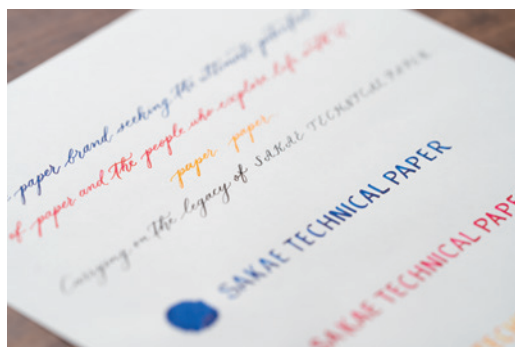 paper brand seeking the ultimate
of paper and the people who explore life with it
paper paper
Carrying on the legacy of SAKAE TECHNICAL PAPER
SAKAE TECHNICAL PAPER
SAKAE TECHNICAL PAPE
TECH